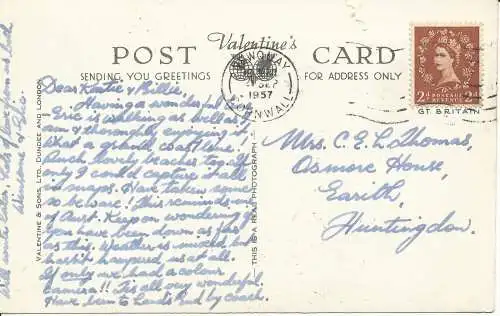 POST Valentine's CARD
SENDING YOU GREETINGS
FOR ADDRESS ONLY
NEWQUAY
SEP
1957
CORNWALL
2d POSTAGE REVENUE 2d
GT. BRITAIN
VALENTINE & SONS, LTD., DUNDEE AND LONDON
THIS IS A REAL PHOTOGRAPH
Dear Katie & Billie,
Having a wonderful
Eric is walking as well as I
am & thoroughly enjoying it.
What a grand coast line!
Such lovely beaches too. If
only I could capture it all
in snaps. Have taken some
so beware! This reminds me
of Aust. Keep on wondering if
you have been down as far
as this. Weather is mixed but
hasn't hampered us at all.
If only we had a colour
camera!! 'Tis all very wonderful.
Have been to Lands End by coach.
Will write later. Lots of love from us both
& Eric.
Mrs. C. E. L. Thomas,
Osmore House,
Earith,
Huntingdon.